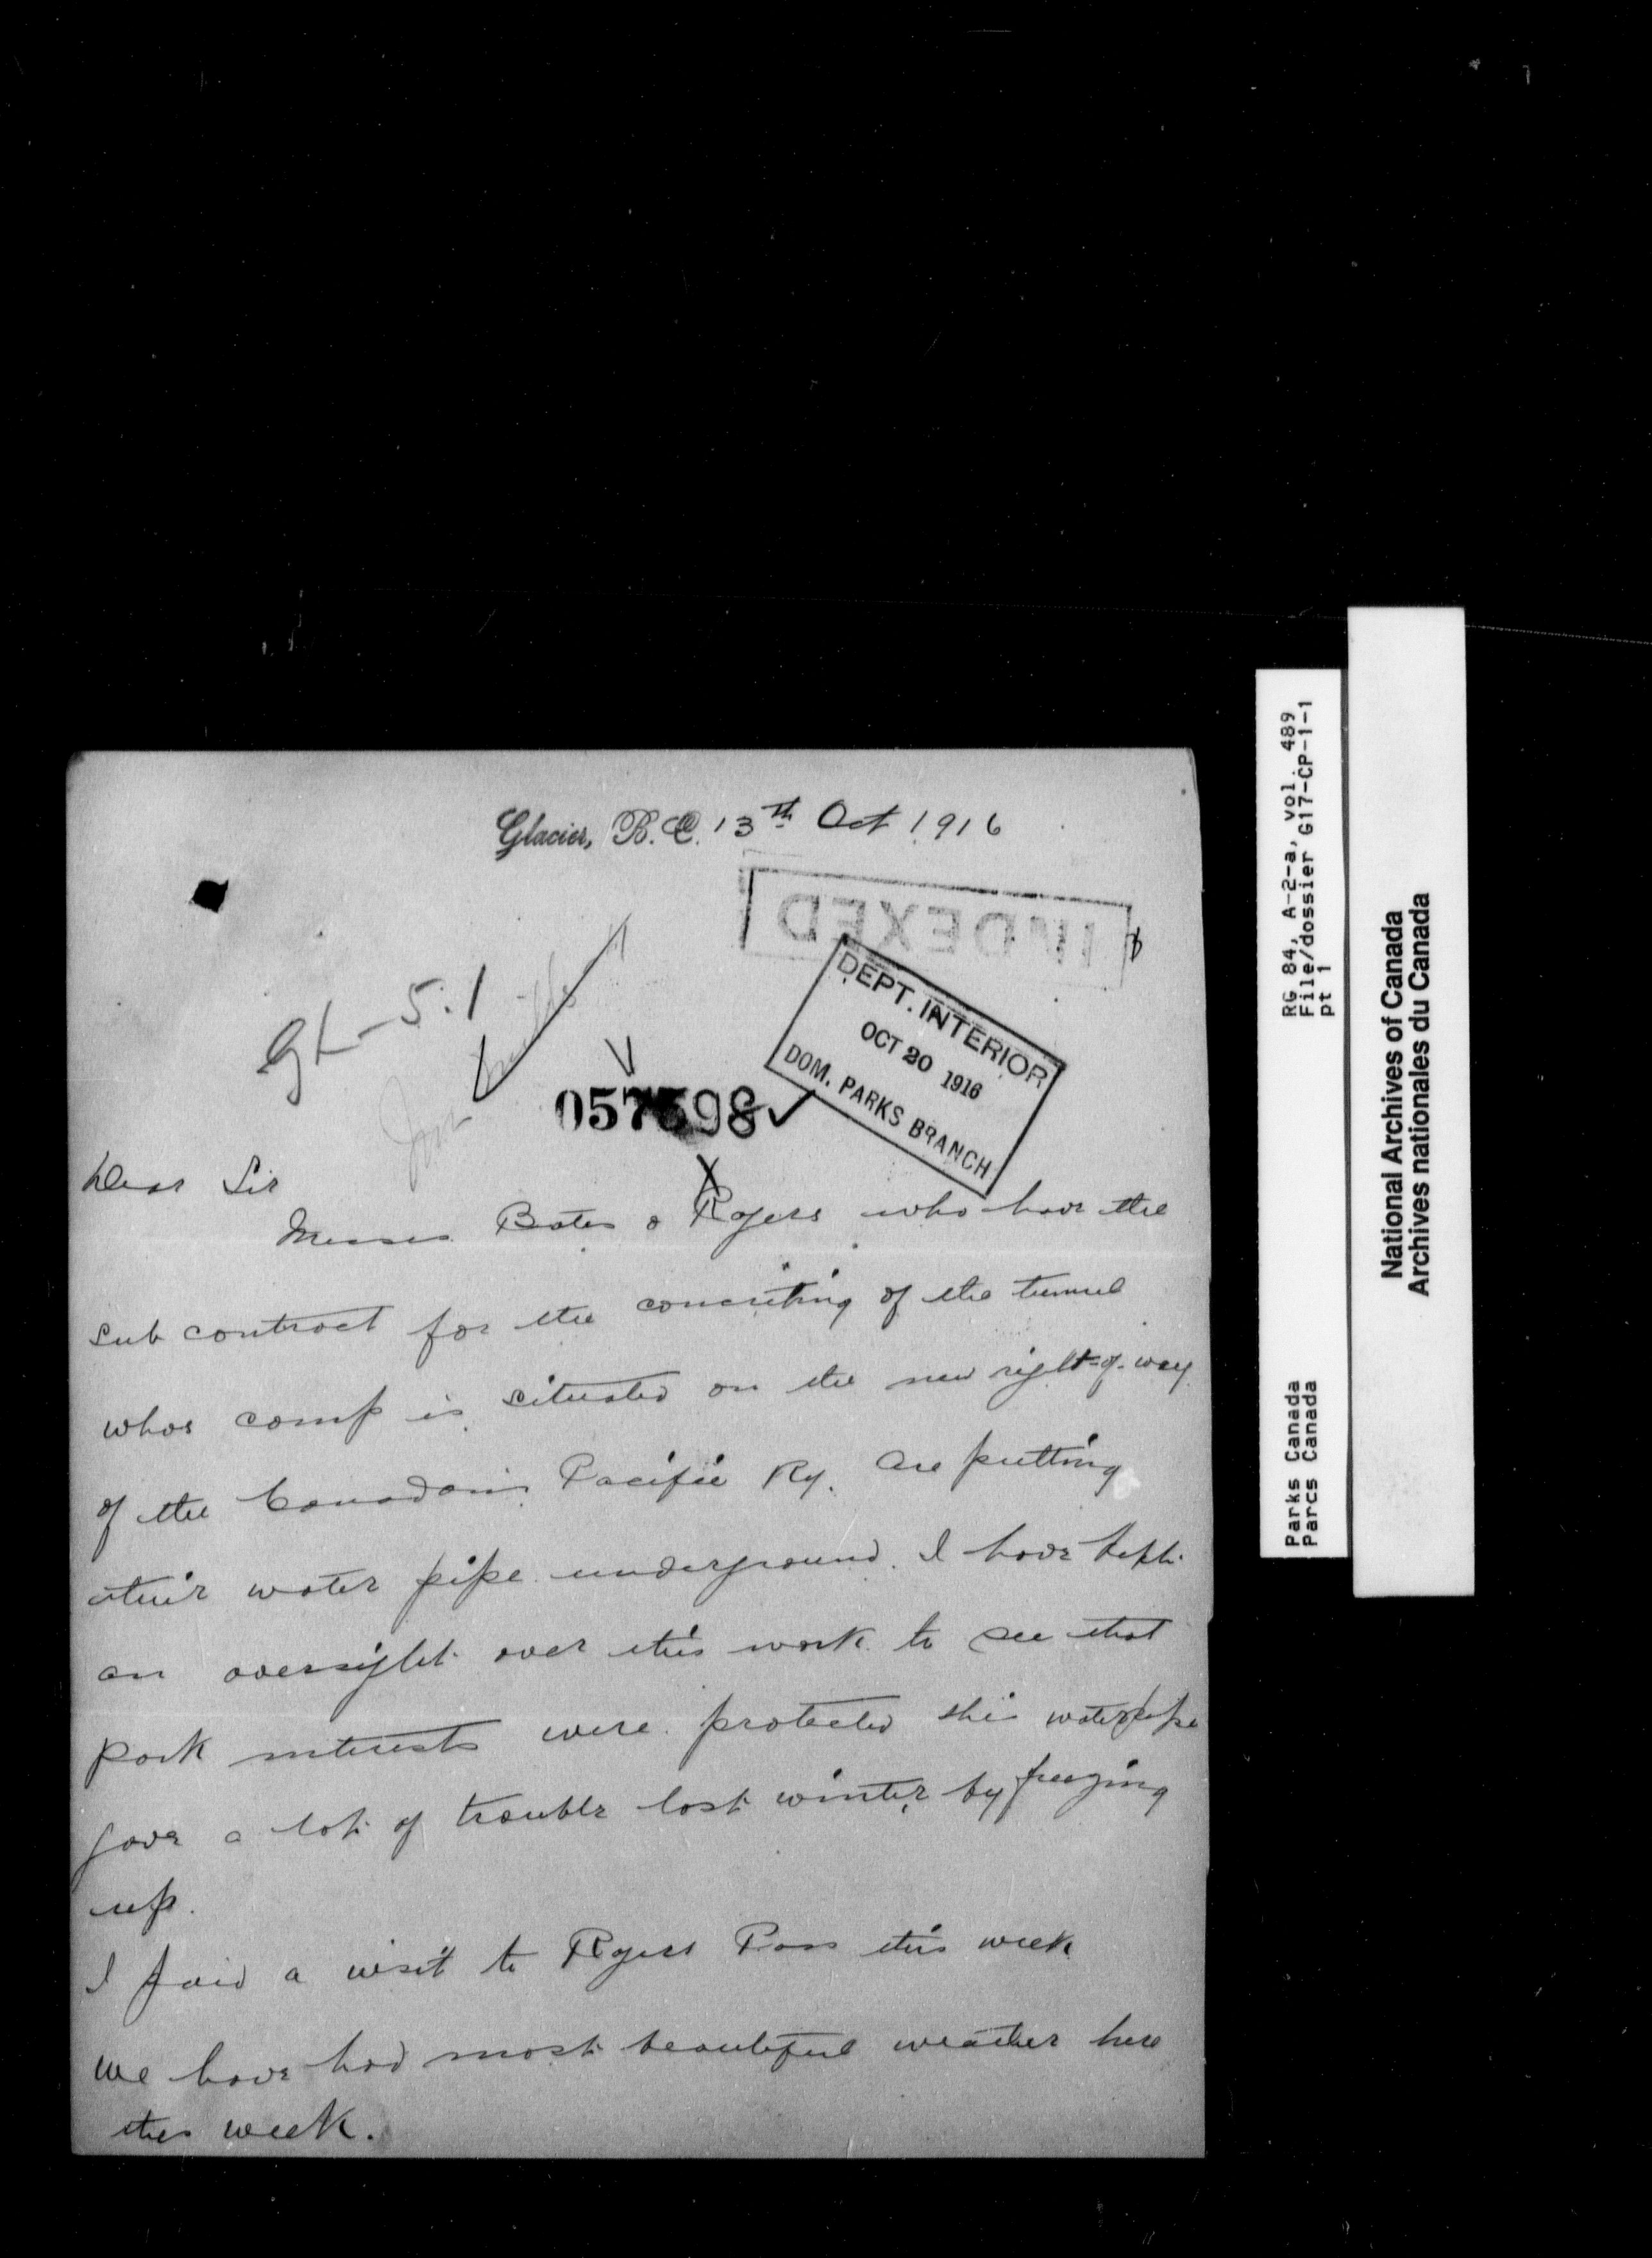 Glacier, B.C. 13th Oct 1916
INDEXED
DEPT. INTERIOR
OCT 20 1916
DOM. PARKS BRANCH
GL-5.1
Dear Sir
Messrs Bates & Rogers who have the
sub contract for the concreting of the tunnel
whos camp is situated on the new right-of-way
of the Canadain Pacific Ry. are putting
their water pipe underground. I have kept
an oversight over this work to see that
park interests were protected this waterpipe
gave a lot of trouble last winter by freezing
up.
I paid a visit to Rogers Pass this week
we have had most beautiful weather here
this week.
RG 84, A-2-a, vol. 489
File/dossier G17-CP-1-1
pt 1
Parks Canada
Parcs Canada
National Archives of Canada
Archives nationales du Canada